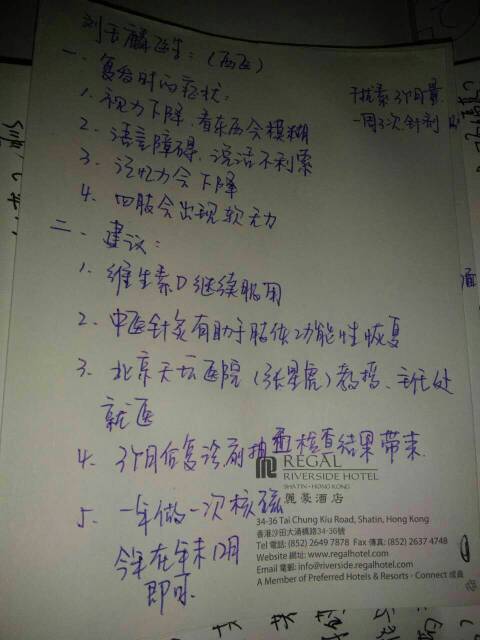 刘玉麟医生：(西医)
一、复发时的症状：
1. 视力下降，看东西会模糊
2. 语言障碍，说话不利索
3. 记忆力会下降
4. 四肢会出现软无力
干扰素 3个月量
一周3次针剂
二、建议：
1. 维生素D继续服用
2. 中医针灸有助于肢体功能性恢复
3. 北京天坛医院（张星虎）教授、主任处
就医
4. 3个月后复诊前抽血检查结果带来
5. 一年做一次核磁
今年在年末12月
即可.
REGAL
RIVERSIDE HOTEL
SHATIN · HONG KONG
麗豪酒店
34-36 Tai Chung Kiu Road, Shatin, Hong Kong
香港沙田大涌橋路34-36號
Tel 電話: (852) 2649 7878 Fax 傳真: (852) 2637 4748
Website 網址: www.regalhotel.com
Email 電郵: info@riverside.regalhotel.com
A Member of Preferred Hotels & Resorts - Connect 成員